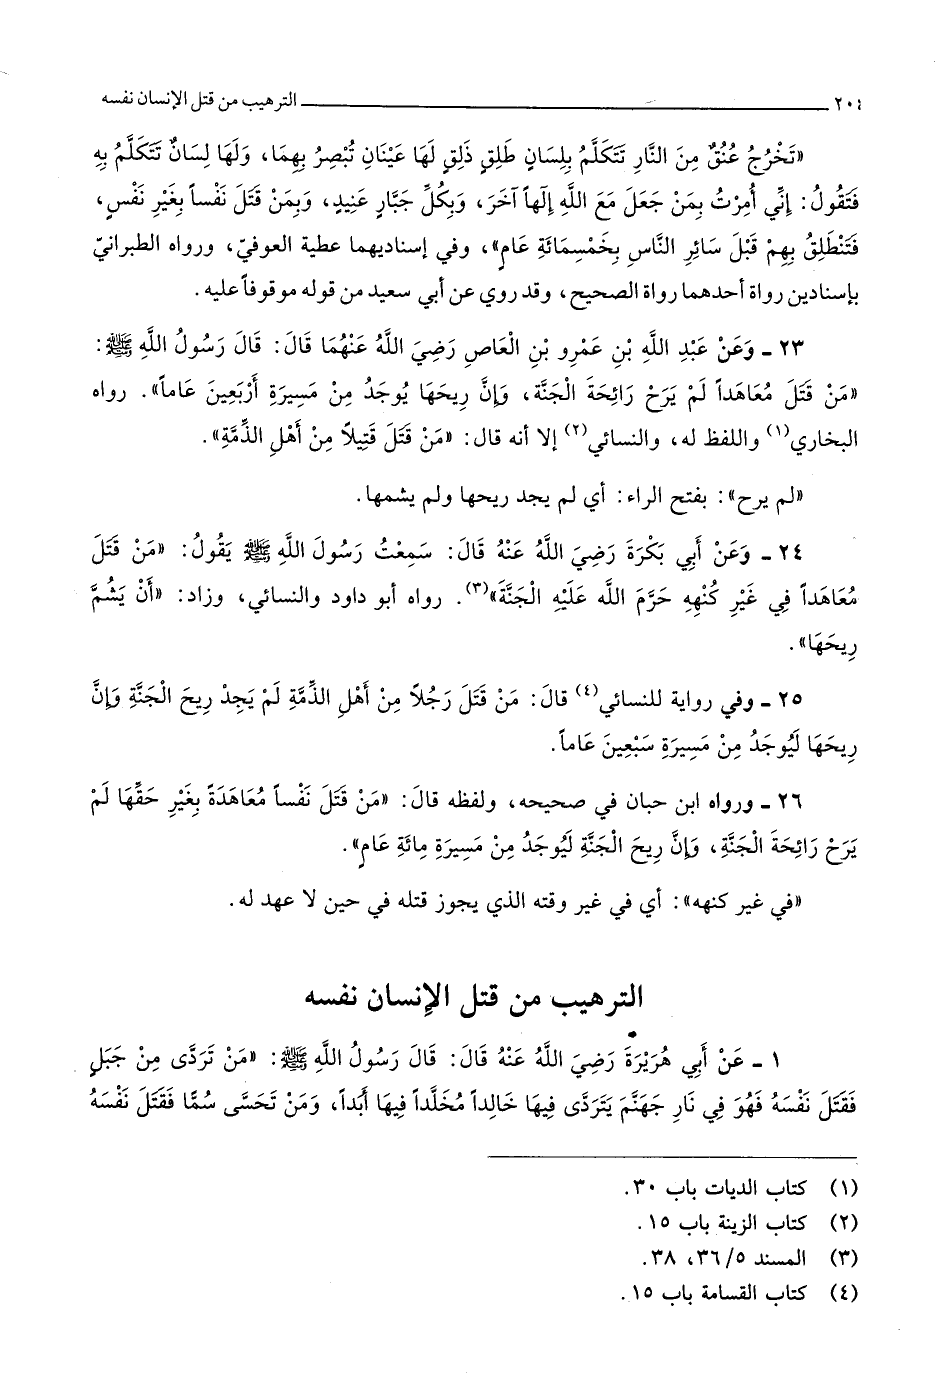 ٢٠٤ الترهيب من قتل الإنسان نفسه
«تَخْرُجُ عُنُقٌ مِنَ النَّارِ تَتَكَلَّمُ بِلِسَانٍ طَلِقٍ ذَلِقٍ لَهَا عَيْنَانِ تُبْصِرُ بِهِمَا، وَلَهَا لِسَانٌ تَتَكَلَّمُ بِهِ
فَتَقُولُ: إِنِّي أُمِرْتُ بِمَنْ جَعَلَ مَعَ اللَّهِ إِلَهاً آخَرَ، وَبِكُلِّ جَبَّارٍ عَنِيدٍ، وَبِمَنْ قَتَلَ نَفْساً بِغَيْرِ نَفْسٍ،
فَتَنْطَلِقُ بِهِمْ قَبْلَ سَائِرِ النَّاسِ بِخَمْسِمَائَةِ عَامٍ»، وفي إسناديهما عطية العوفيّ، ورواه الطبرانيّ
بإسنادين رواة أحدهما رواة الصحيح، وقد روي عن أبي سعيد من قوله موقوفاً عليه.
٢٣ ـ وَعَنْ عَبْدِ اللَّهِ بْنِ عَمْرِو بْنِ الْعَاصِ رَضِيَ اللَّهُ عَنْهُمَا قَالَ: قَالَ رَسُولُ اللَّهِ ﷺ:
«مَنْ قَتَلَ مُعَاهَداً لَمْ يَرَحْ رَائِحَةَ الْجَنَّةِ، وَإِنَّ رِيحَهَا يُوجَدُ مِنْ مَسِيرَةِ أَرْبَعِينَ عَاماً». رواه
البخاري(١) واللفظ له، والنسائي(٢) إلا أنه قال: «مَنْ قَتَلَ قَتِيلاً مِنْ أَهْلِ الذِّمَّةِ».
«لم يرح»: بفتح الراء: أي لم يجد ريحها ولم يشمها.
٢٤ ـ وَعَنْ أَبِي بَكْرَةَ رَضِيَ اللَّهُ عَنْهُ قَالَ: سَمِعْتُ رَسُولَ اللَّهِ ﷺ يَقُولُ: «مَنْ قَتَلَ
مُعَاهَداً فِي غَيْرِ كُنْهِهِ حَرَّمَ اللَّه عَلَيْهِ الْجَنَّةَ»(٣). رواه أبو داود والنسائي، وزاد: «أَنْ يَشُمَّ
رِيحَهَا».
٢٥ ـ وفي رواية للنسائي(٤) قالَ: مَنْ قَتَلَ رَجُلاً مِنْ أَهْلِ الذِّمَّةِ لَمْ يَجِدْ رِيحَ الْجَنَّةِ وَإِنَّ
رِيحَهَا لَيُوجَدُ مِنْ مَسِيرَةِ سَبْعِينَ عَاماً.
٢٦ ـ ورواه ابن حبان في صحيحه، ولفظه قالَ: «مَنْ قَتَلَ نَفْساً مُعَاهَدَةً بِغَيْرِ حَقِّهَا لَمْ
يَرَحْ رَائِحَةَ الْجَنَّةِ، وَإِنَّ رِيحَ الْجَنَّةِ لَيُوجَدُ مِنْ مَسِيرَةِ مِائَةِ عَامٍ».
«في غير كنهه»: أي في غير وقته الذي يجوز قتله في حين لا عهد له.
الترهيب من قتل الإنسان نفسه
١ ـ عَنْ أَبِي هُرَيْرَةَ رَضِيَ اللَّهُ عَنْهُ قَالَ: قَالَ رَسُولُ اللَّهِ ﷺ: «مَنْ تَرَدَّى مِنْ جَبَلٍ
فَقَتَلَ نَفْسَهُ فَهُوَ فِي نَارِ جَهَنَّمَ يَتَرَدَّى فِيهَا خَالِداً مُخَلَّداً فِيهَا أَبَداً، وَمَنْ تَحَسَّى سُمًّا فَقَتَلَ نَفْسَهُ
(١) كتاب الديات باب ٣٠.
(٢) كتاب الزينة باب ١٥.
(٣) المسند ٣٦/٥، ٣٨.
(٤) كتاب القسامة باب ١٥.